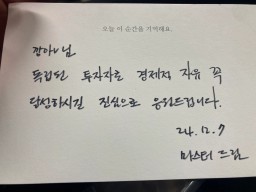 오늘 이 순간을 기억해요.
깡아느님
독립된 투자자로 경제적 자유 꼭
달성하시길 진심으로 응원드립니다.
24.12.7
마스터 드림